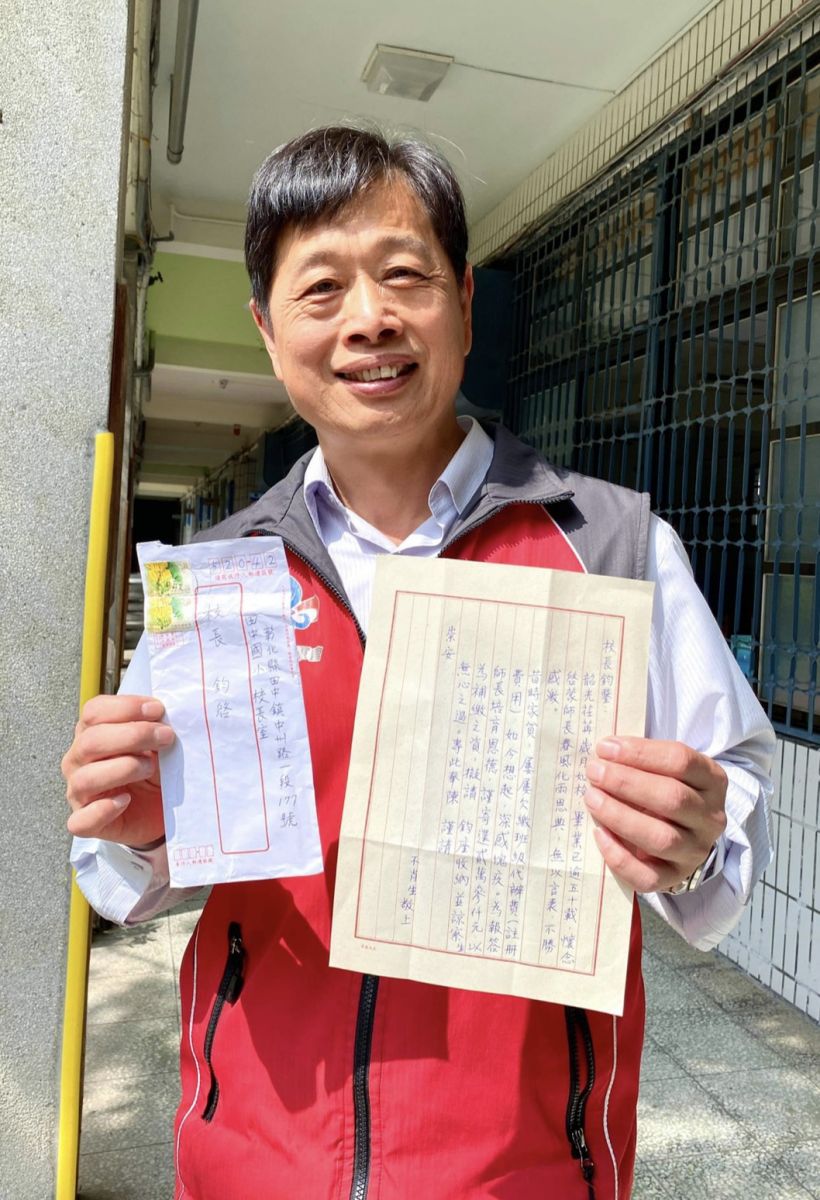 52042
彰化縣田中鎮中州路一段177號
田中國小校長室
校長 鈞啓
校長鈞鑒:
韶光荏苒歲月如梭,畢業已逾五十載,懷念
啓蒙師長春風化雨恩典,無以言表,不勝
感激。
昔時家貧,屢屢欠繳班級代辦費(註冊
費用),如今想起,深感愧疚。為報答
師長培育恩德,謹寄還貳萬參仟元以
為補繳之資,擬請 鈞座收納並諒察生
無心之過。專此奉陳 謹請
崇安
不肖生敬上